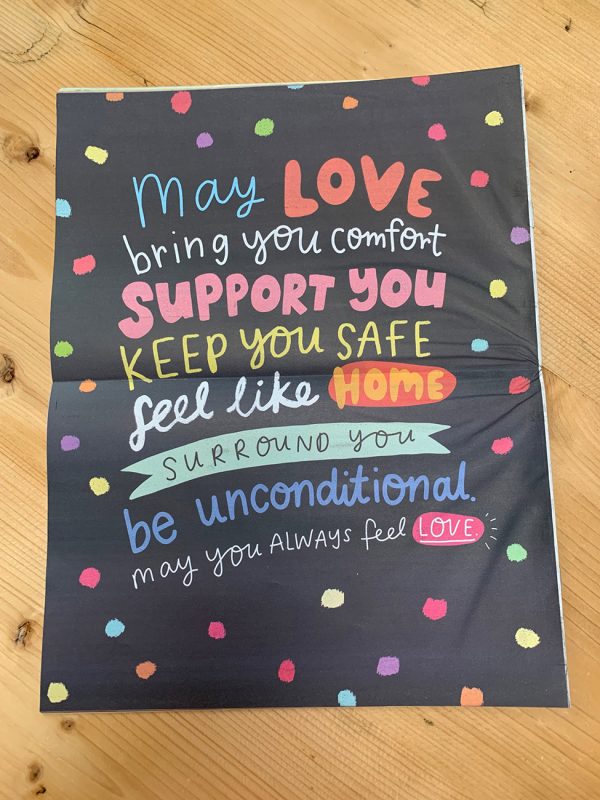 may LOVE
bring you comfort
SUPPORT YOU
KEEP you SAFE
feel like HOME
SURROUND YOU
be unconditional.
may you ALWAYS feel LOVE.